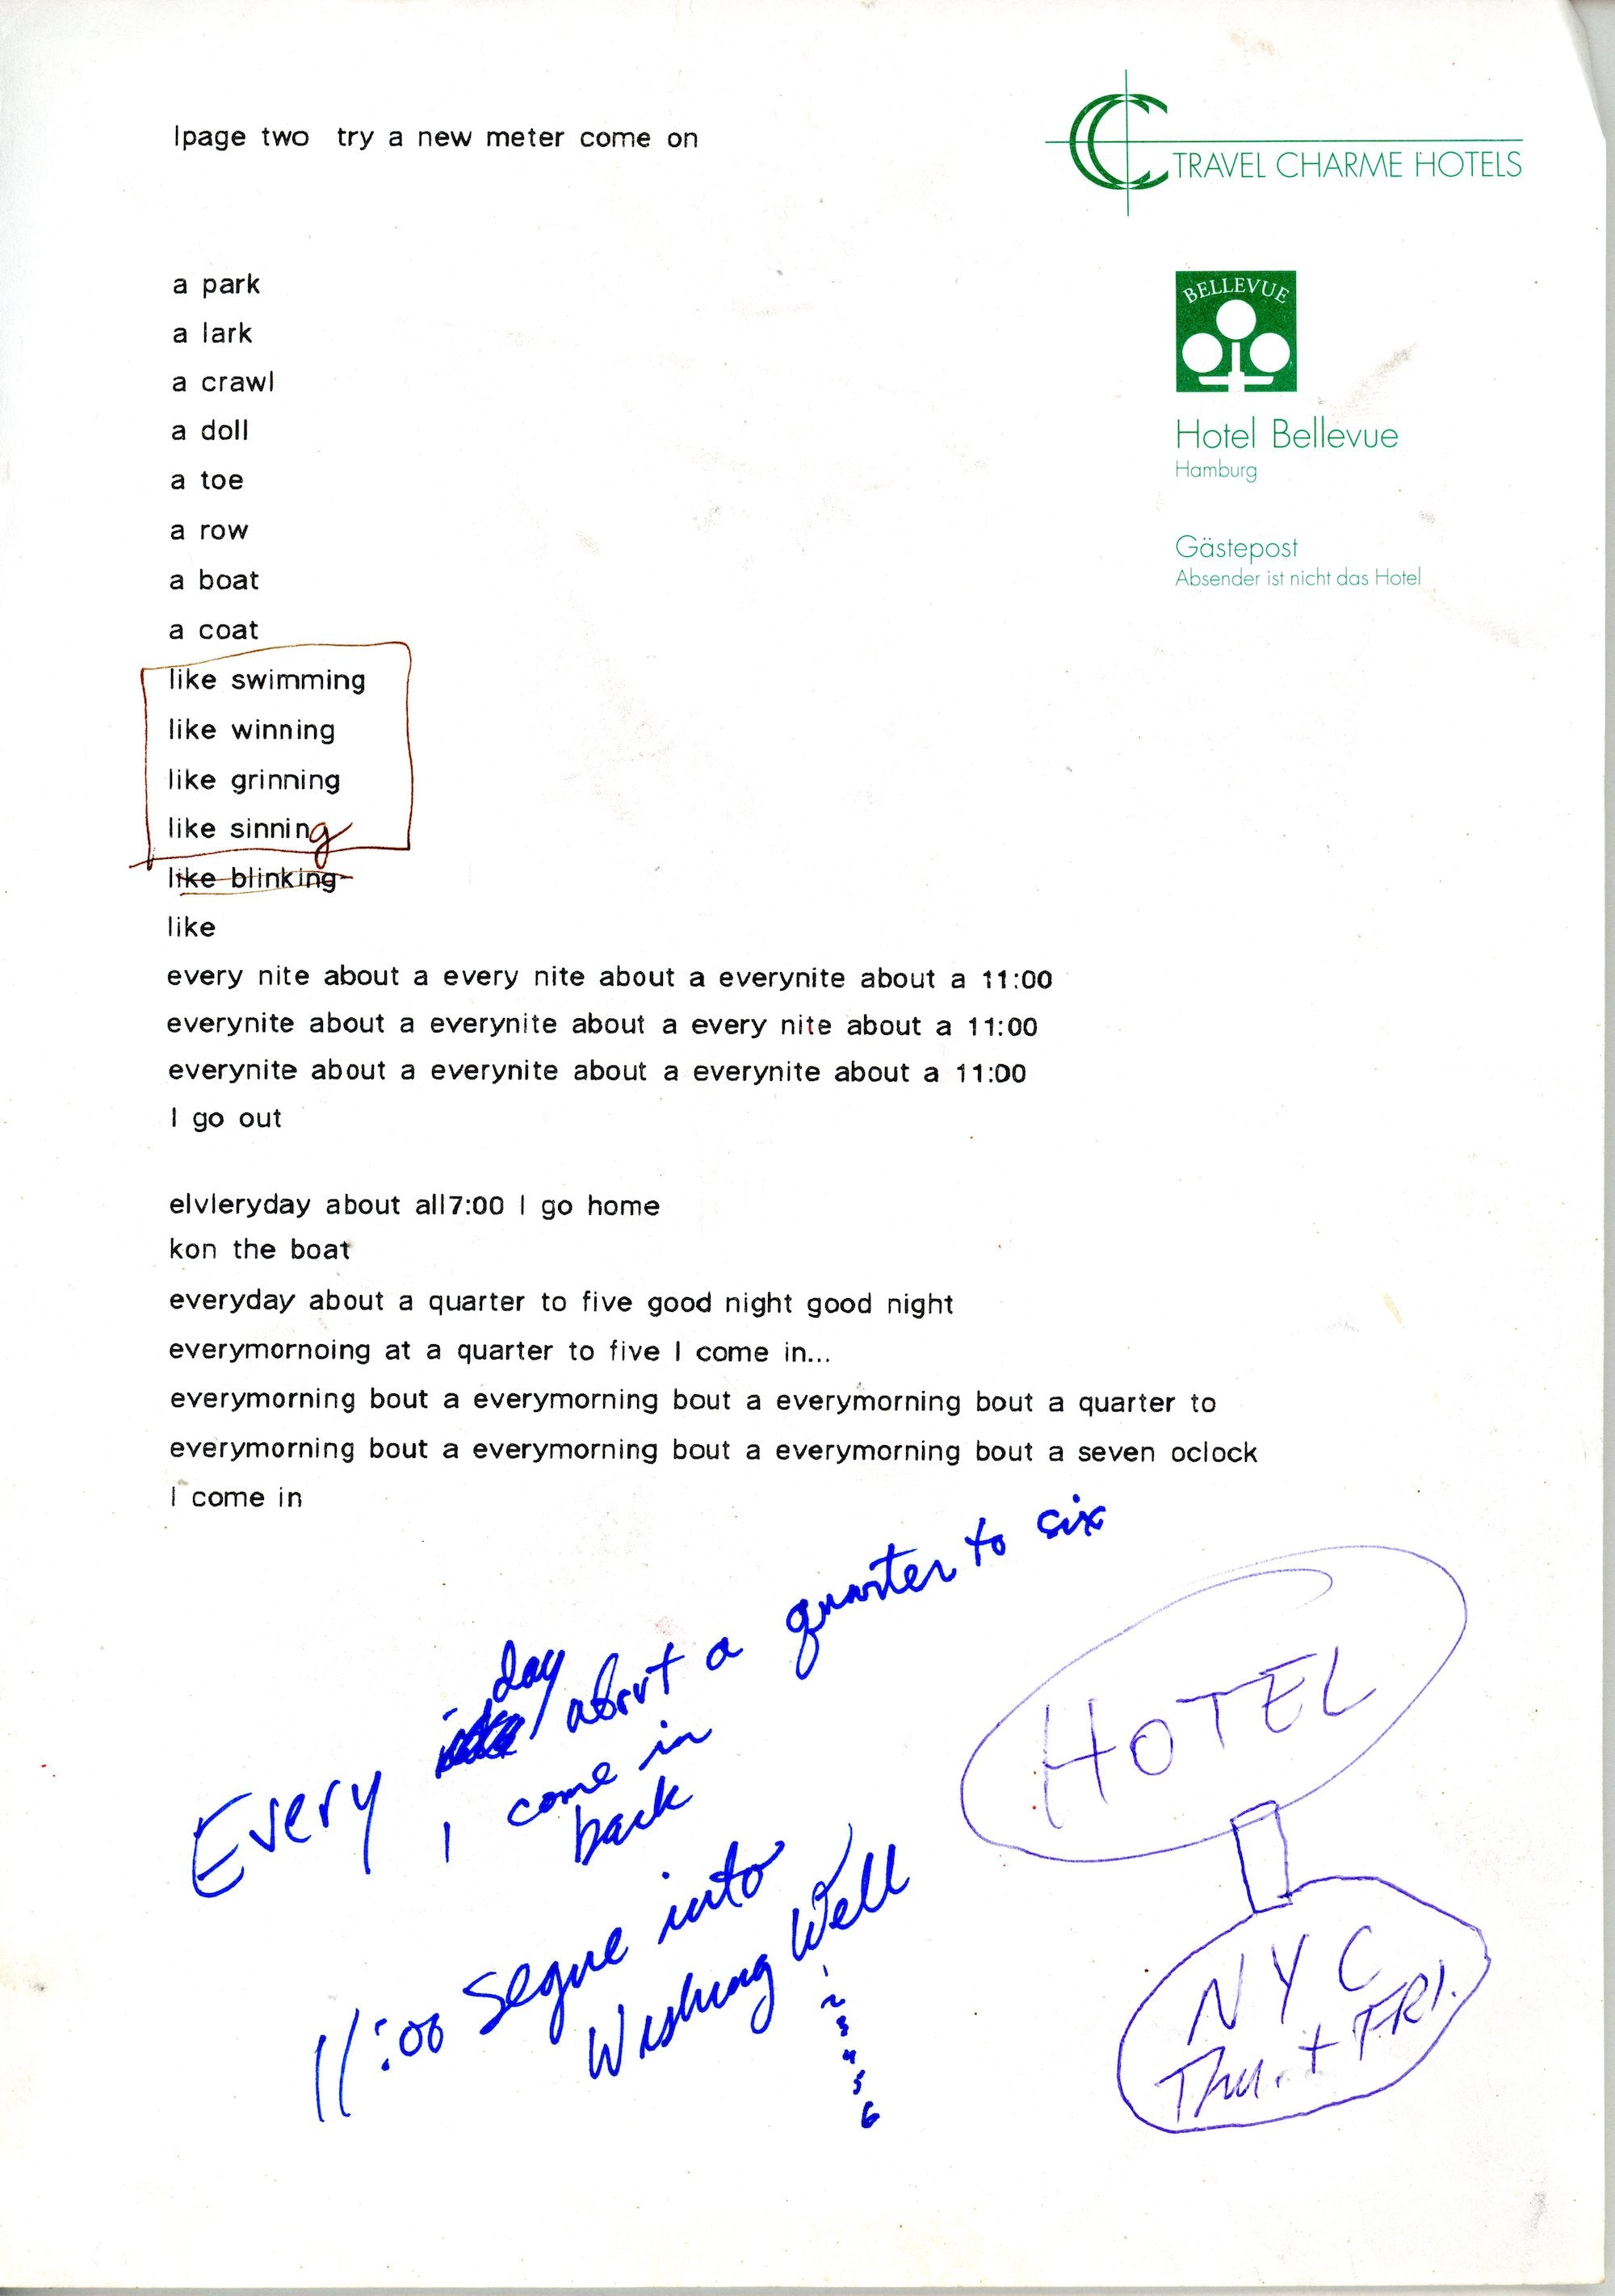 lpage two  try a new meter come on
TRAVEL CHARME HOTELS
BELLEVUE
Hotel Bellevue
Hamburg
Gästepost
Absender ist nicht das Hotel
a park
a lark
a crawl
a doll
a toe
a row
a boat
a coat
like swimming
like winning
like grinning
like sinning
like blinking
like
every nite about a every nite about a everynite about a 11:00
everynite about a everynite about a every nite about a 11:00
everynite about a everynite about a everynite about a 11:00
I go out
elvleryday about all7:00 I go home
kon the boat
everyday about a quarter to five good night good night
everymornoing at a quarter to five I come in...
everymorning bout a everymorning bout a everymorning bout a quarter to
everymorning bout a everymorning bout a everymorning bout a seven oclock
I come in
Every day about a quarter to six
I come in
back
11:00 segue into
Wishing Well
1
2
3
4
5
6
HOTEL
NYC
Thu. + FRI.